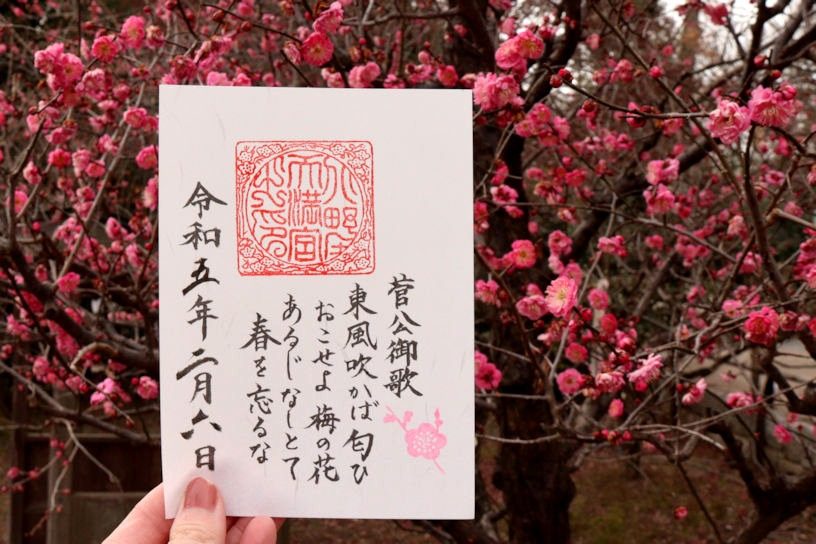 菅公御歌
東風吹かば 匂ひ
おこせよ 梅の花
あるじなしとて
春を忘るな
天満宮
令和五年二月六日